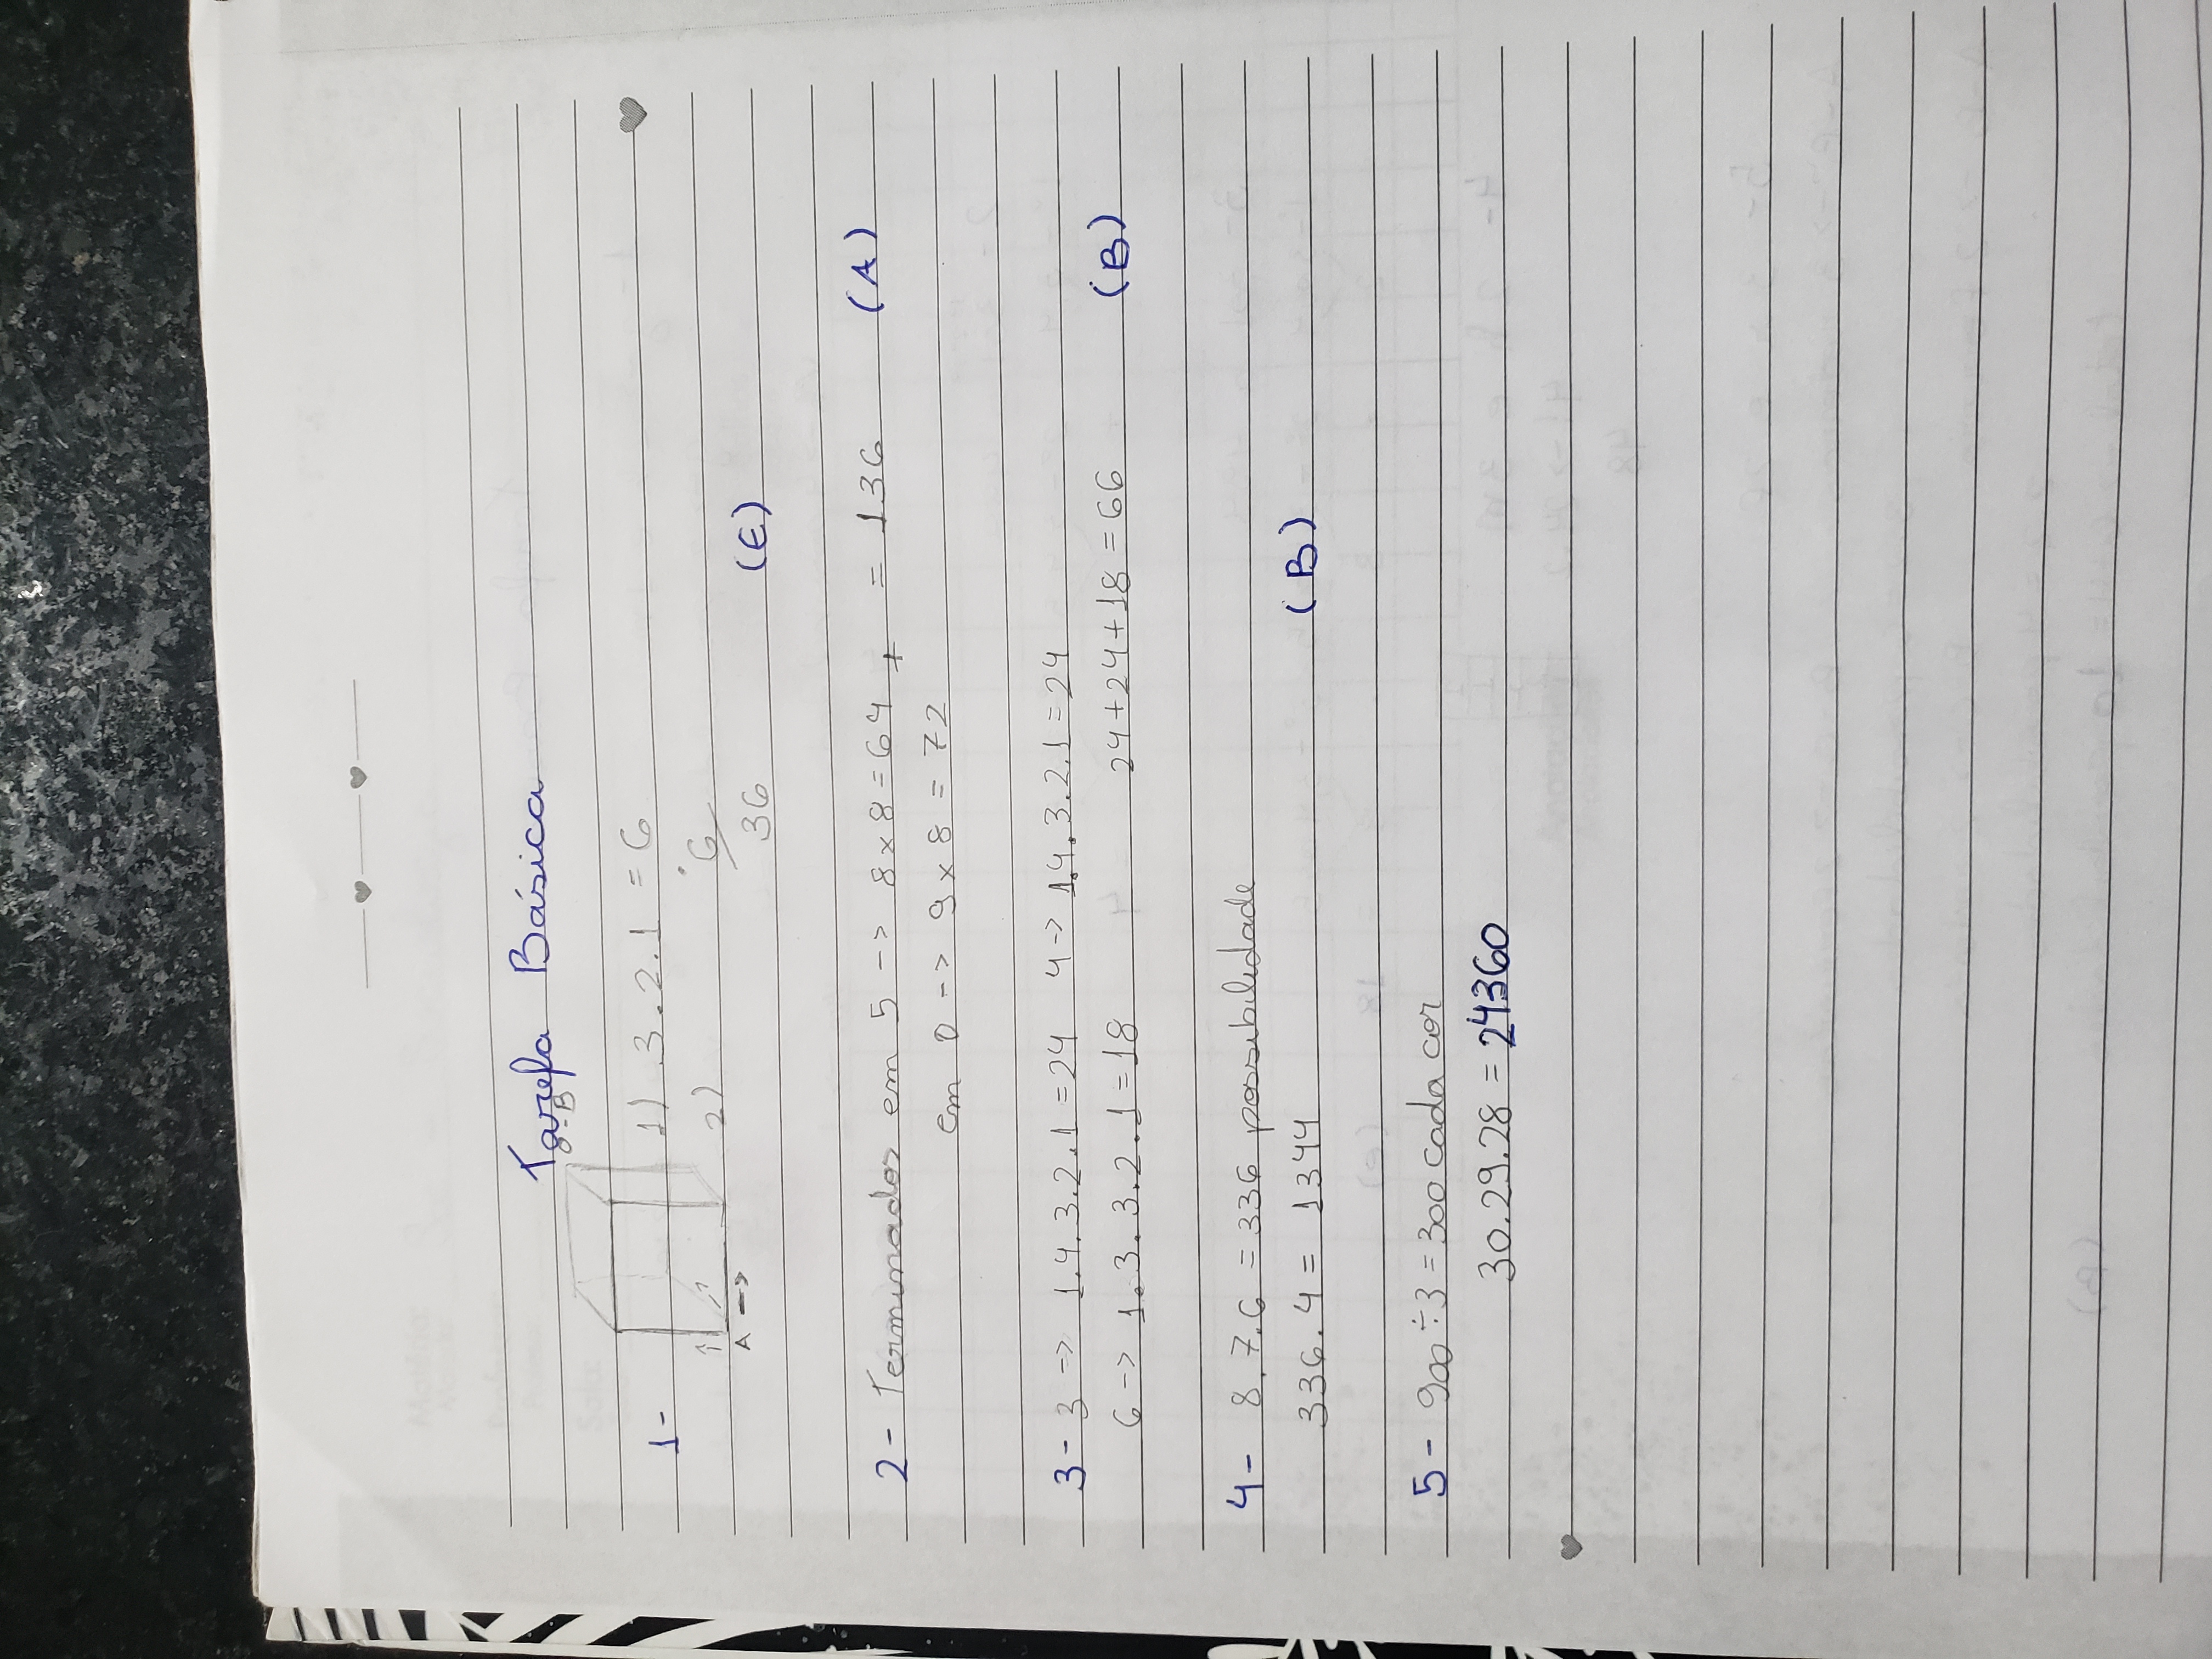 Tarefa Básica
B
1-
1) 3.2.1 = 6
2) 6
36 (E)
A ->
2- Terminados em 5 -> 8x8=64 + = 136 (A)
em 0 -> 9x8=72
3- 3 -> 1.4.3.2.1=24 4-> 1.4.3.2.1=24
6 -> 1.3.3.2.1=18 24+24+18=66 (B)
4- 8.7.6 = 336 possibilidade
336.4 = 1344 (B)
5- 900÷3=300 cada cor
30.29.28 = 24360